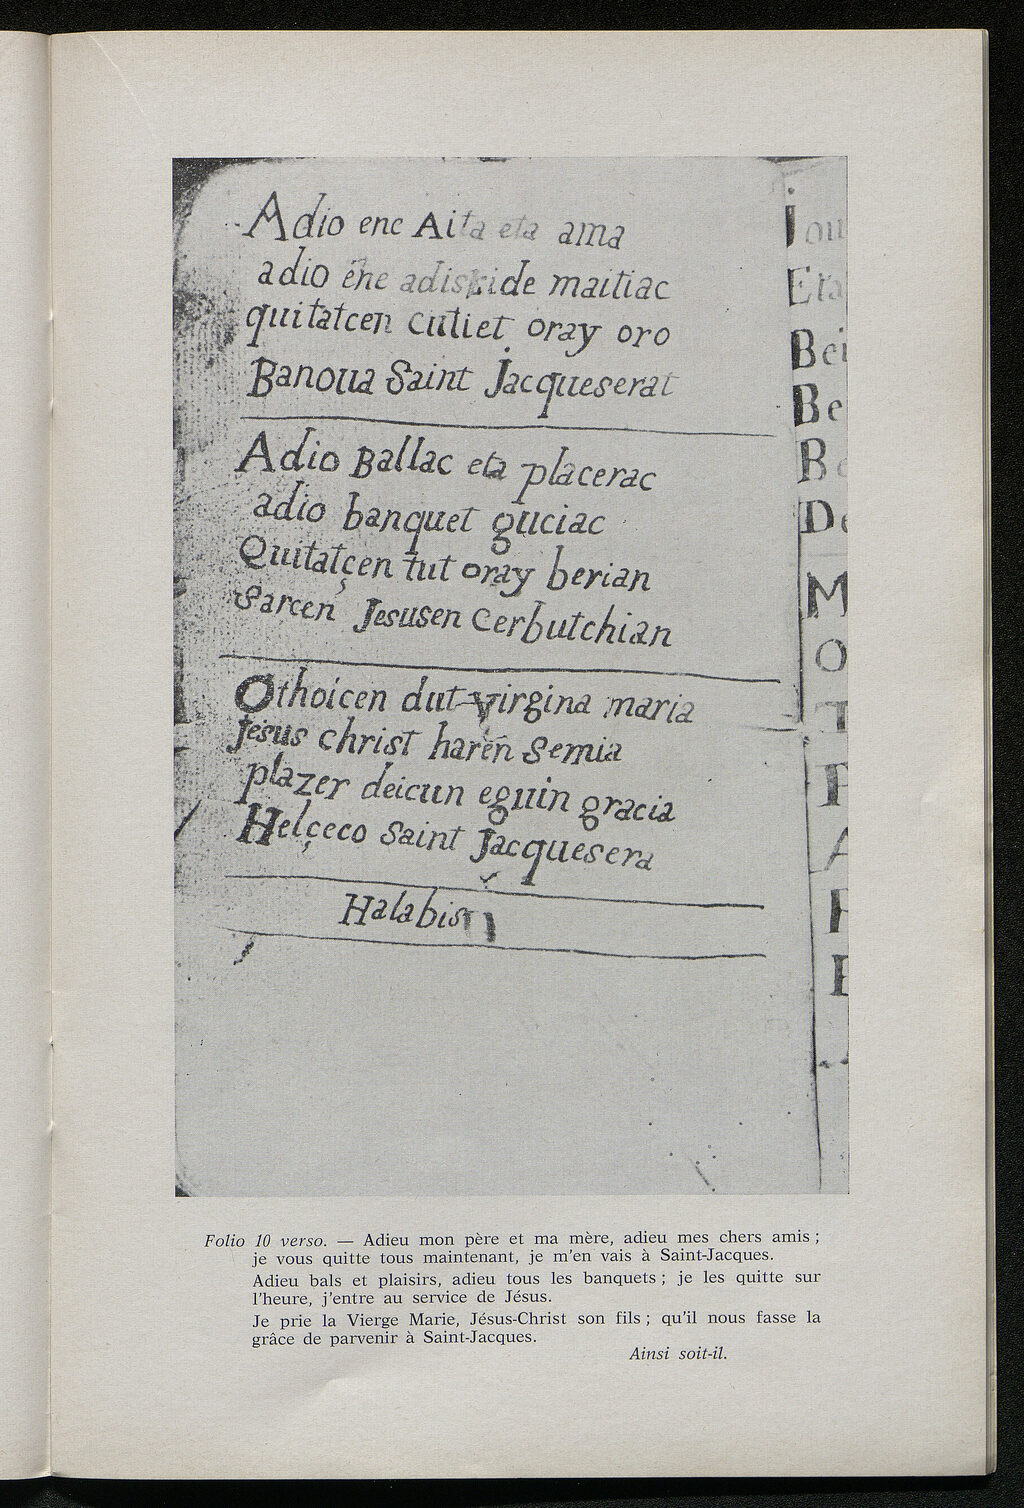 Adio enc Aita eta ama
adio ene adiskide maitiac
quitatcen cutiet oray oro
Banoua Saint Jacqueserat
Adio Ballac eta placerac
adio banquet guciac
Quitatçen tut oray berian
Sarcen Jesusen Cerbutchian
Othoicen dut virgina maria
Jesus christ haren Semia
plazer deicun eguin gracia
Helçeco Saint Jacquesera
Halabis
Folio 10 verso. — Adieu mon père et ma mère, adieu mes chers amis ;
je vous quitte tous maintenant, je m'en vais à Saint-Jacques.
Adieu bals et plaisirs, adieu tous les banquets ; je les quitte sur
l'heure, j'entre au service de Jésus.
Je prie la Vierge Marie, Jésus-Christ son fils ; qu'il nous fasse la
grâce de parvenir à Saint-Jacques.
Ainsi soit-il.